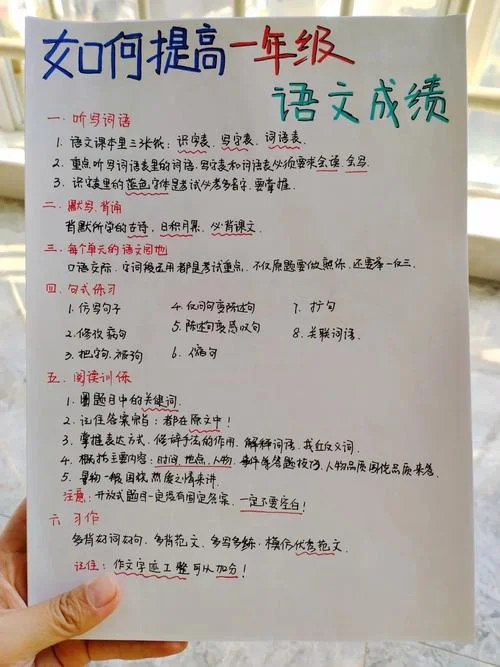 如何提高一年级
语文成绩
一、听写词语
1. 语文课本里三张纸：识字表、写字表、词语表。
2. 重点听写词语表里的词语，写字表和词语表必须要求会读、会写。
3. 识字表里的蓝色字体是考试必考多音字，要掌握。
二、默写、背诵
背默所学的古诗、日积月累、必背课文。
三、每个单元的语文园地
口语交际、字词句运用都是考试重点，不仅原题要做熟练，还要举一反三。
四、句式练习
1. 仿写句子 4. 反问句变陈述句 7. 扩句
2. 修改病句 5. 陈述句变感叹句 8. 关联词语。
3. 把字句、被字句 6. 缩句
五、阅读训练
1. 圈题目中的关键词。
2. 记住答案宗旨：都在原文中！
3. 掌握表达方式、修辞手法的作用，解释词语，找近反义词。
4. 概括主要内容：时间、地点、人物、事件等答题技巧，人物品质围绕品质来答。
5. 景物一般围绕热爱之情来讲。
注意：开放式题目一定没有固定答案，一定不要空白！
六 习作
多背好词好句，多背范文，多写多练，模仿优秀范文。
记住：作文字迹工整可以加分！